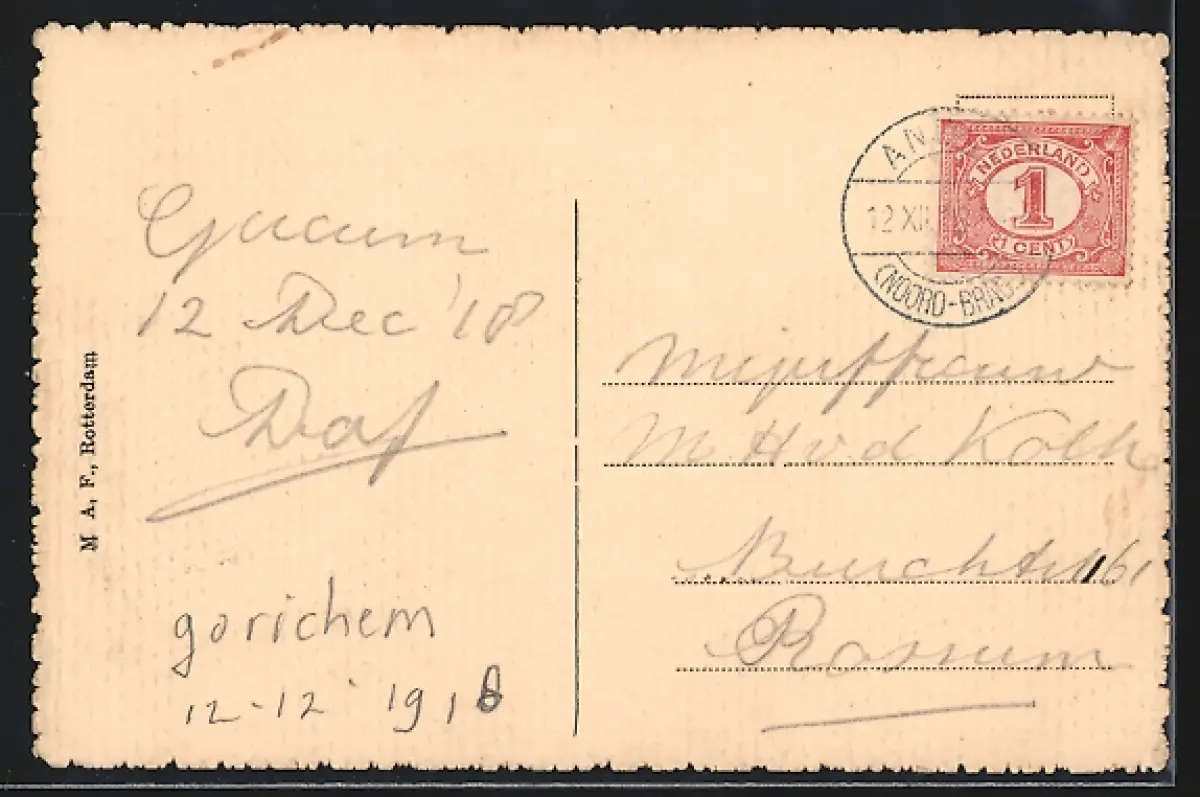 12 Dec '18
Daf
gorichem
12-12 1918
M A, F., Rotterdam
AN
12 XII 18
(NOORD-BRAB
NEDERLAND
1
1 CENT
Mejuffrouw
M. H. v. d. Kolk
Rossum